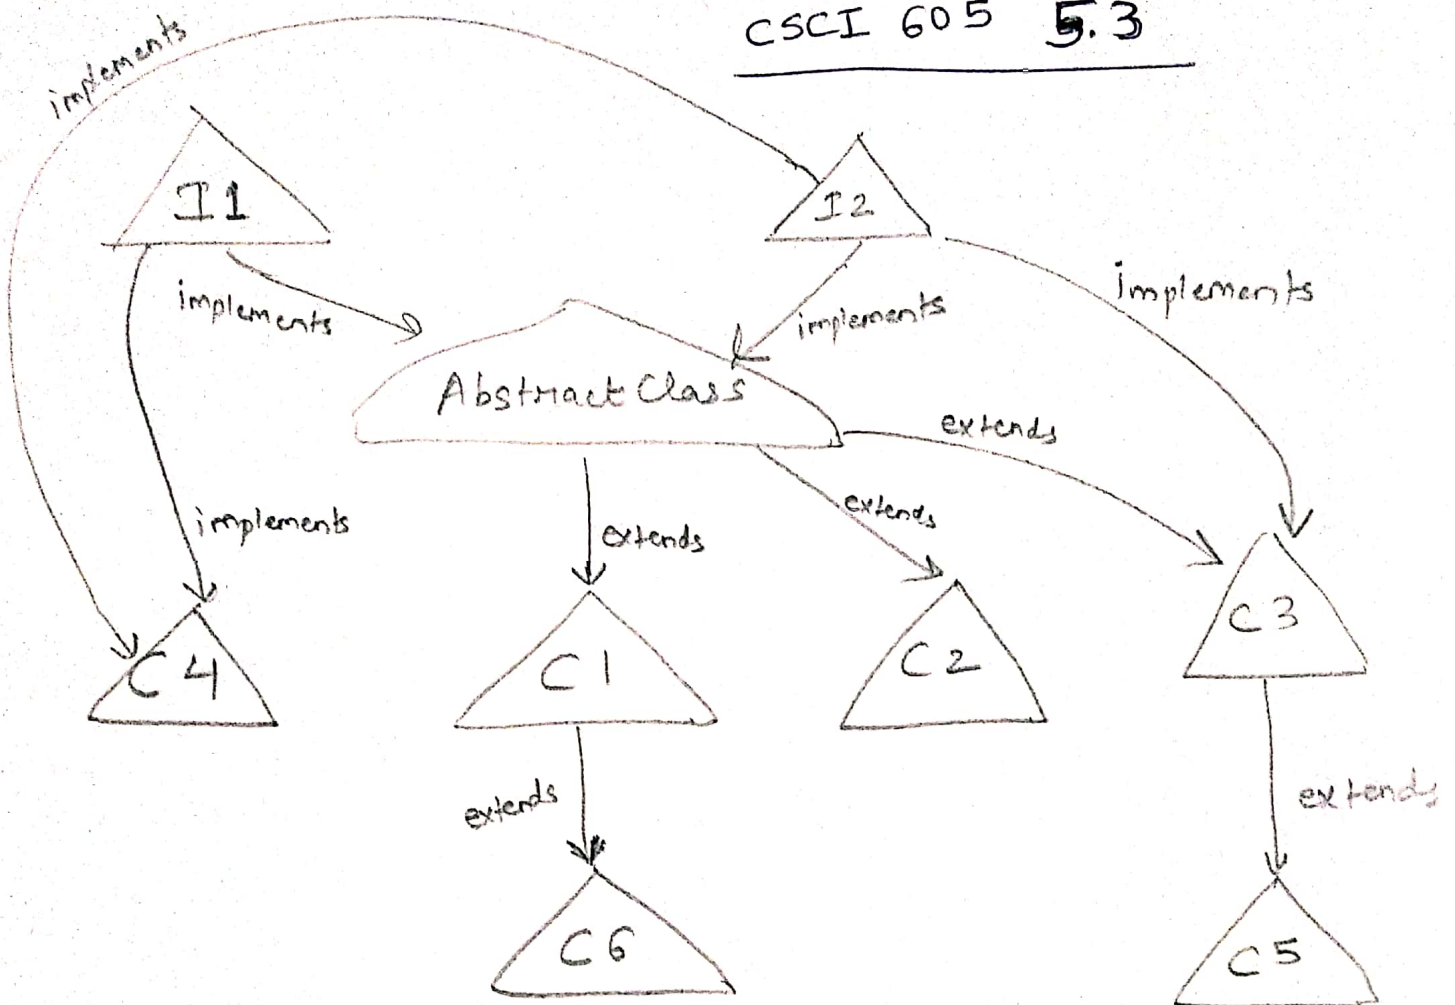 CSCI 605 5.3
implements
I1
I2
implements
implements
implements
Abstract Class
extends
implements
extends
extends
C4
C1
C2
C3
extends
extends
C6
C5